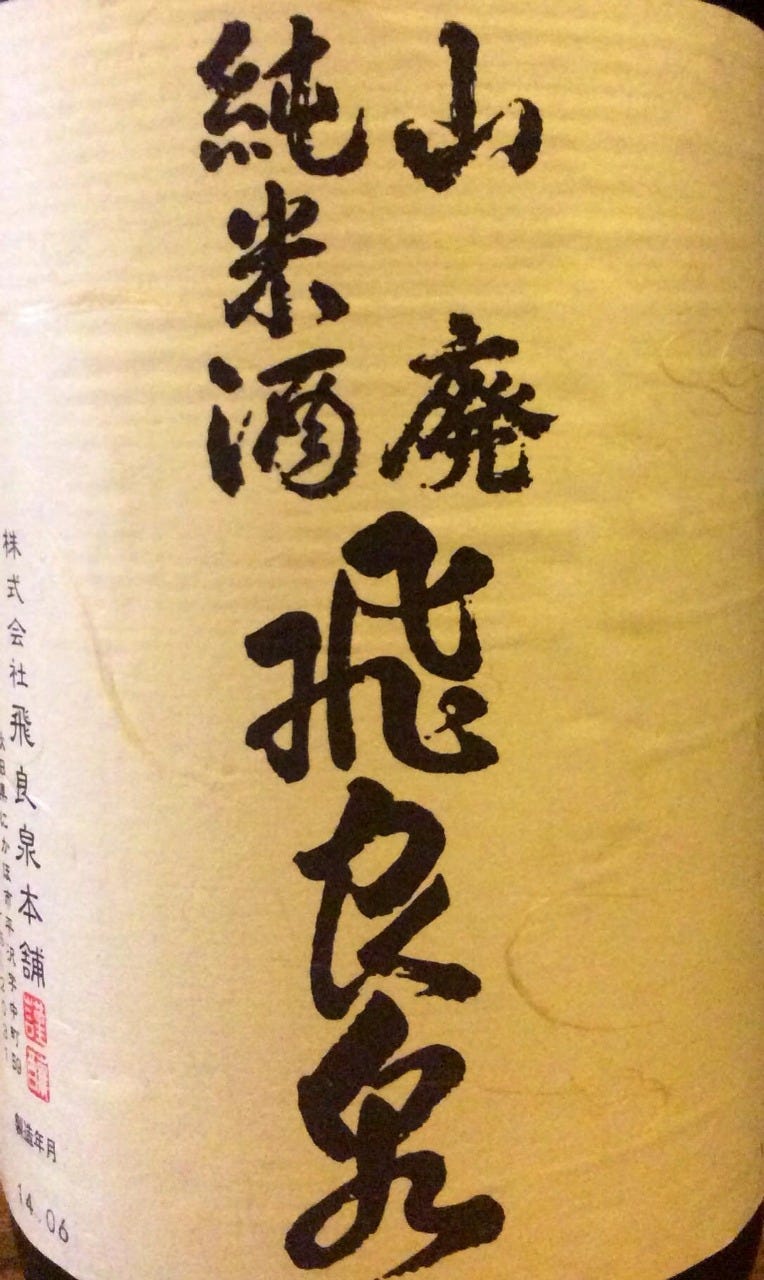 山廃
純米酒
飛良泉
株式会社飛良泉本舗
田県にかほ市平沢字中町59
謹醸
製造年月
14.06